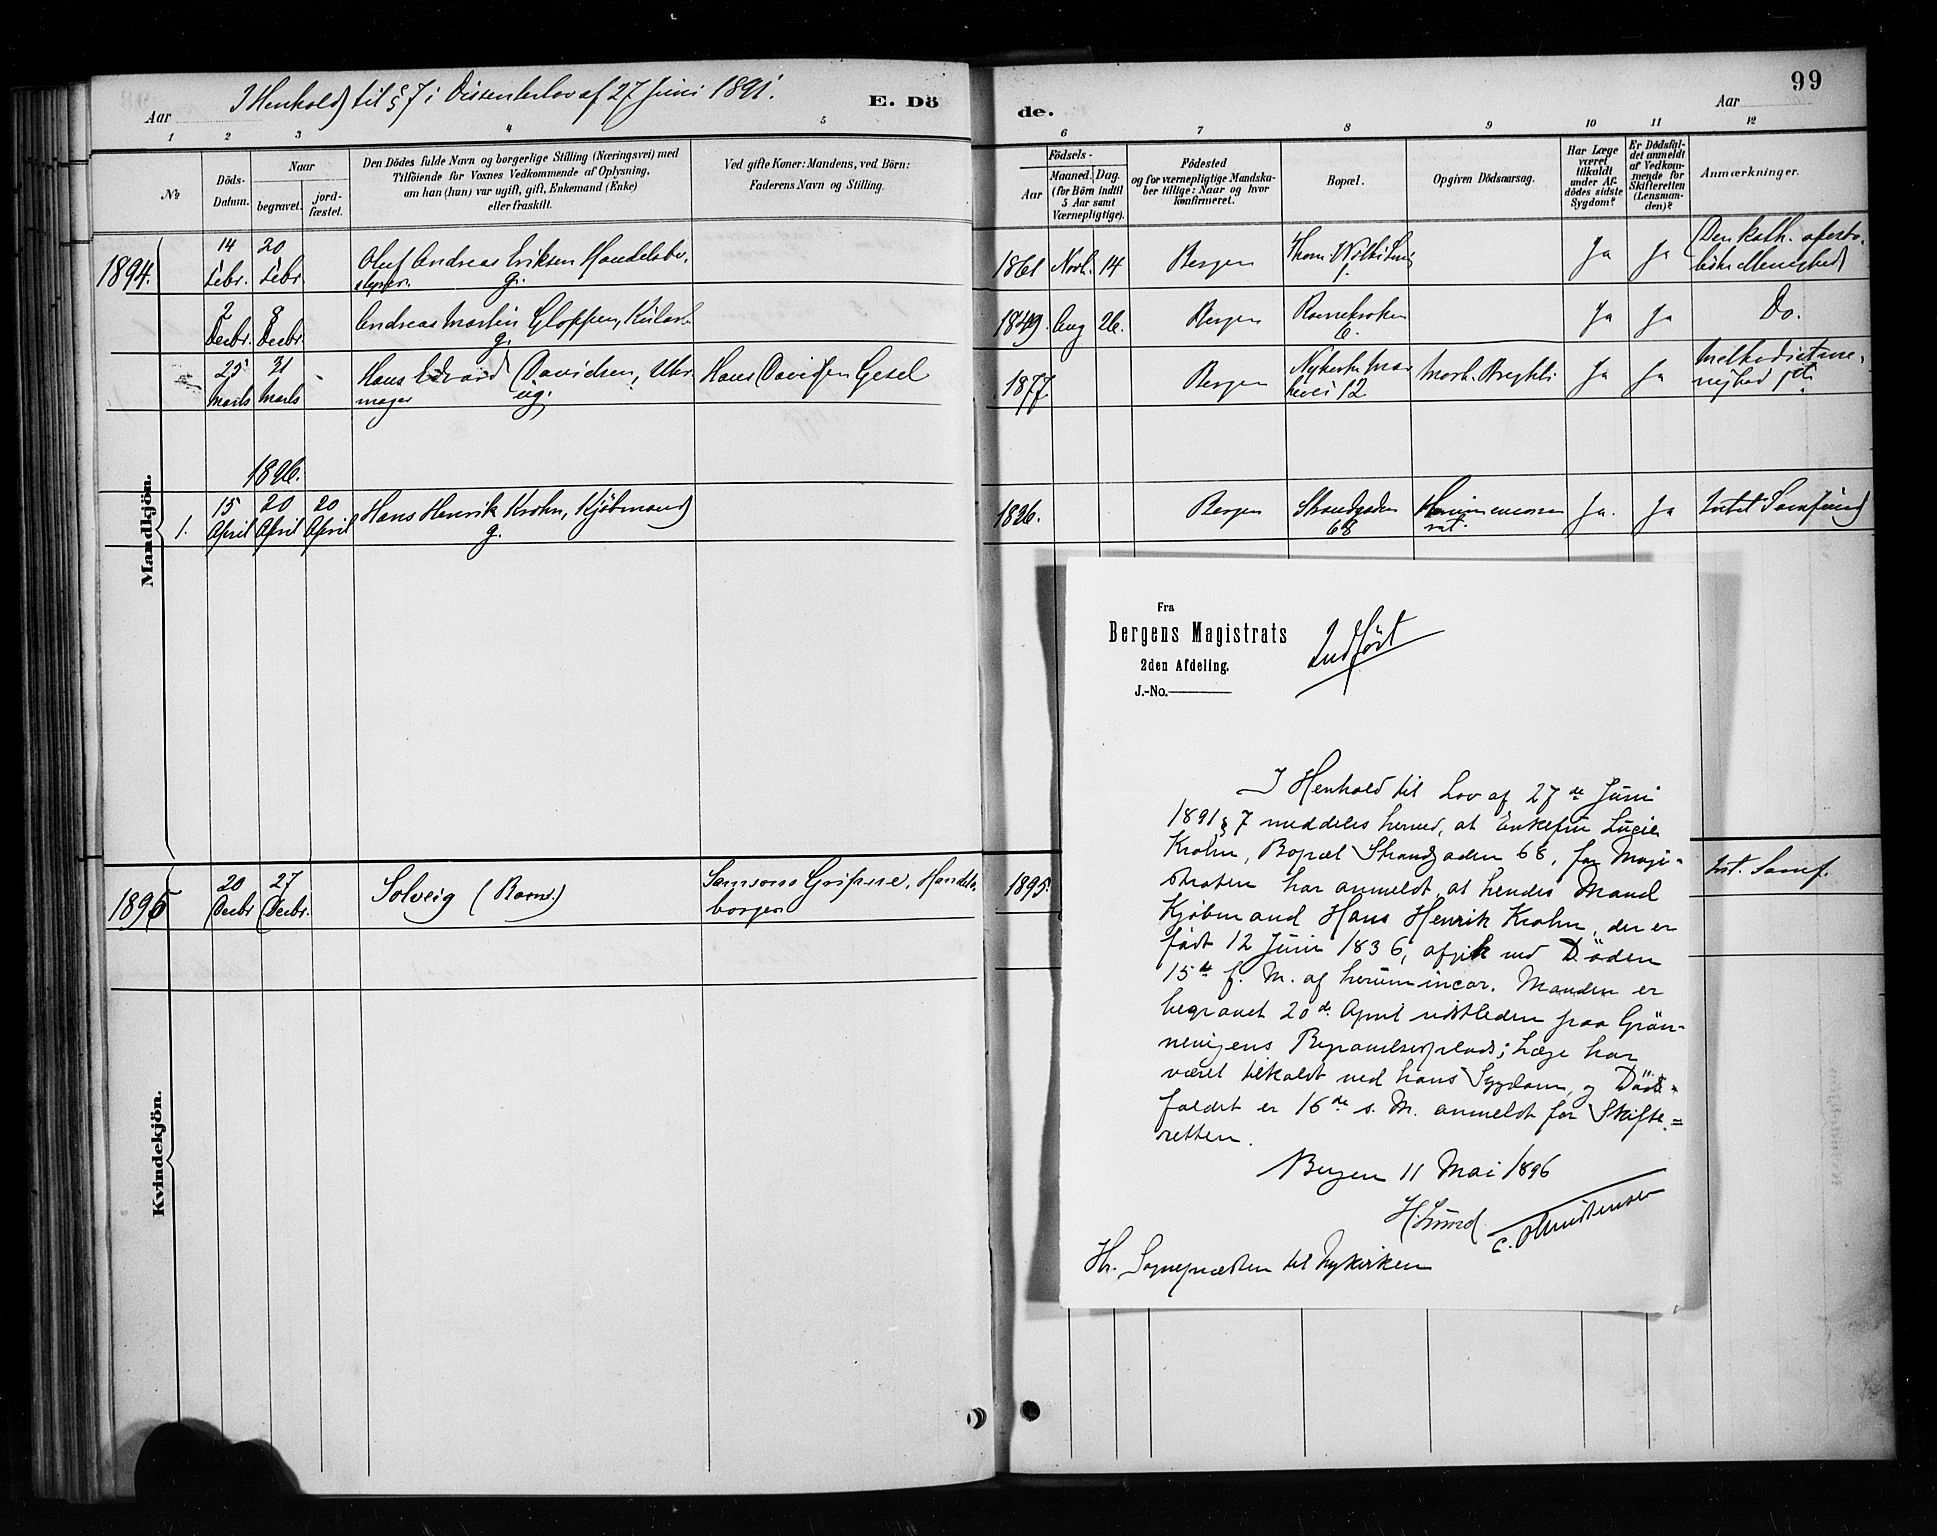 99
I Henhold til § 7 i Dissenterlov af 27 Juni 1891.
E. Dö
de.
Aar
Aar
1 2 3 4 5 6 7 8 9 10 11 12
No
Döds-
Datum.
Naar
begravet.
jord-
fæstet.
Den Dödes fulde Navn og borgerlige Stilling (Næringsvei) med
Tilföiende for Voxnes Vedkommende af Oplysning,
om han (hun) var ugift, gift, Enkemand (Enke)
eller fraskilt.
Ved gifte Koner: Mandens, ved Börn:
Faderens Navn og Stilling.
Födsels-
Aar
Maaned.
Dag.
(for Börn indtil
5 Aar samt
Værnepligtige).
Födested
og for værnepligtige Mandska-
ber tillige: Naar og hvor
konfirmeret.
Bopæl.
Opgiven Dödsaarsag.
Har Læge
været
tilkaldt
under Af-
dödes sidste
Sygdom?
Er Dödsfal-
det anmeldt
af Vedkom-
mende for
Skifteretten
(Lensman-
den)?
Anmærkninger.
Mandkjön.
1894.
14 Febr. 20 Febr. Oluf Andreas Eriksen Handelsbe-
styrer. g.
1861 Novb. 14 Bergen Ja Ja Den kath. aposto-
liske Menighed
2 Decbr. 8 Decbr. Andreas Martin Gloppen,
g.
1849. Aug 26. Bergen 6. Ja Ja Do.
25 Marts 31 Marts - Hans Edvard Davidsen, Uhr-
mager ug.
Hans Davidsen Gesel
1877. Bergen
12 Morb. Brightii Ja Ja Methodistme-
nighed
1896.
1. 15 April 20 April 20 April Hans Henrik Krohn, Kjöbmand
g.
1826. Bergen Strandgaden
68 Ja. Ja Intet Samfund
Kvindekjön.
1895 20 Decbr 27 Decbr. Solveig (Barn)
Samson Handels-
borger
1895. Int. Samf.
Fra
Bergens Magistrats
2den Afdeling.
J.-No.
Indfört
I Henhold til Lov af 27de Juni
1891 § 7 meddeles herved, at Enkefru Lucie
Krohn, Bopæl Strandgaden 68, for Magi-
straten har anmeldt, at hendes Mand
Kjøbmand Hans Henrik Krohn, der er
født 12 Juni 1836, afgik ved Döden
15de f. M. af Manden er
begravet 20de April sidstleden paa Grön-
nevigens Begravelsesplads; Læge har
været tilkaldt ved hans Sygdom, og Döds-
faldet er 16de s. M. anmeldt for Skifte=
retten.
Bergen 11 Mai 1896
H. Lund
C. Christensen
Hr. Sognepræsten til Nykirken